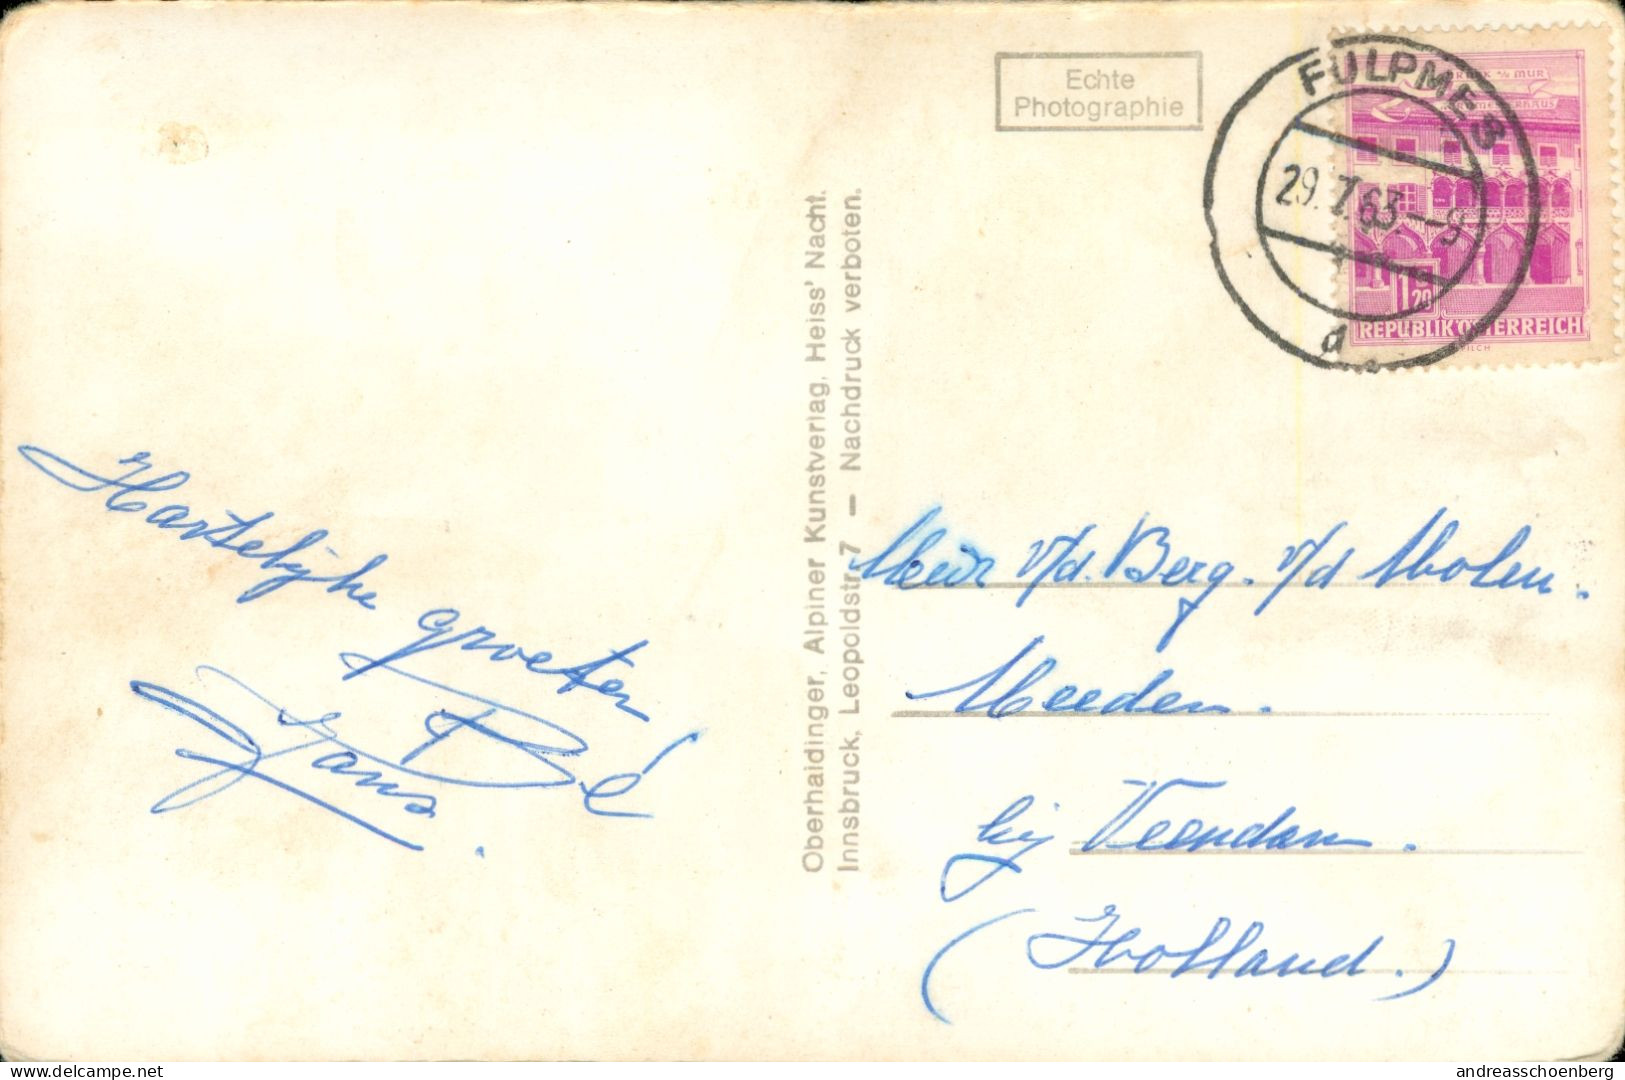 Echte
Photographie
FULPMES
29.7.63.–9
d
MUR
1 20
REPUBLIK ÖSTERREICH
Oberhaidinger, Alpiner Kunstverlag, Heiss' Nacht.
Innsbruck, Leopoldstr. 7 — Nachdruck verboten.
Hartelijke groeten
Hans + Bé
v/d. Berg. v/d Molen.
Meeden.
bij Veendam.
(Holland.)
www.delcampe.net
andreasschoenberg